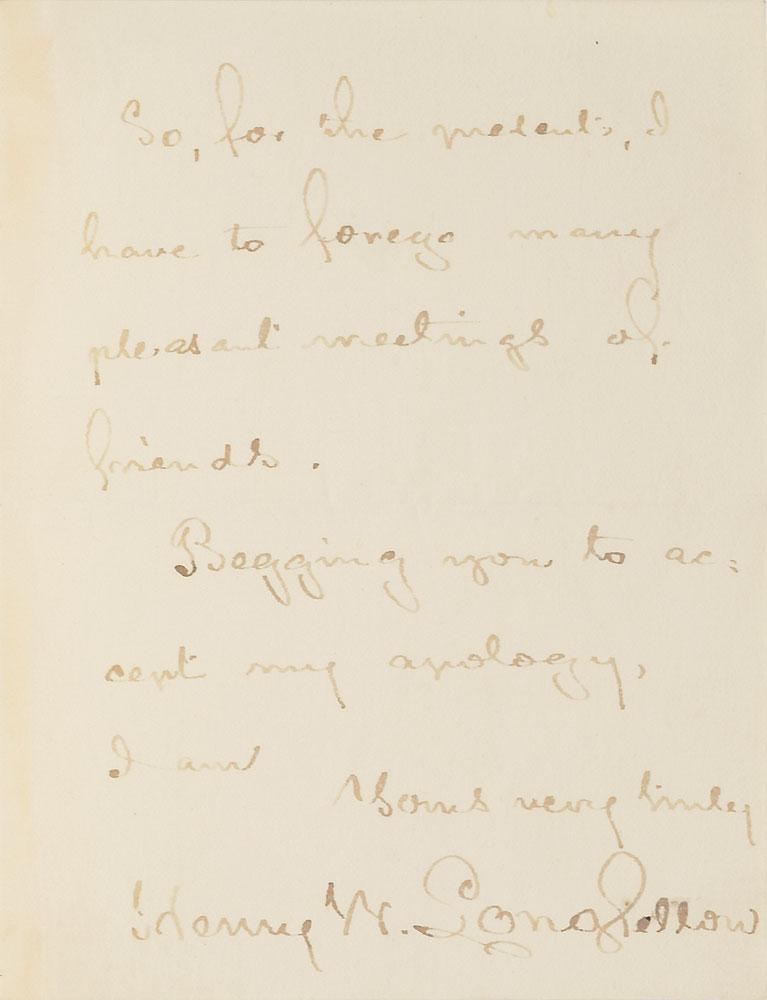 So, for the present, I
have to forego many
pleasant meetings of
friends.
Begging you to ac:
cept my apology,
I am
Yours very truly
Henry W. Longfellow